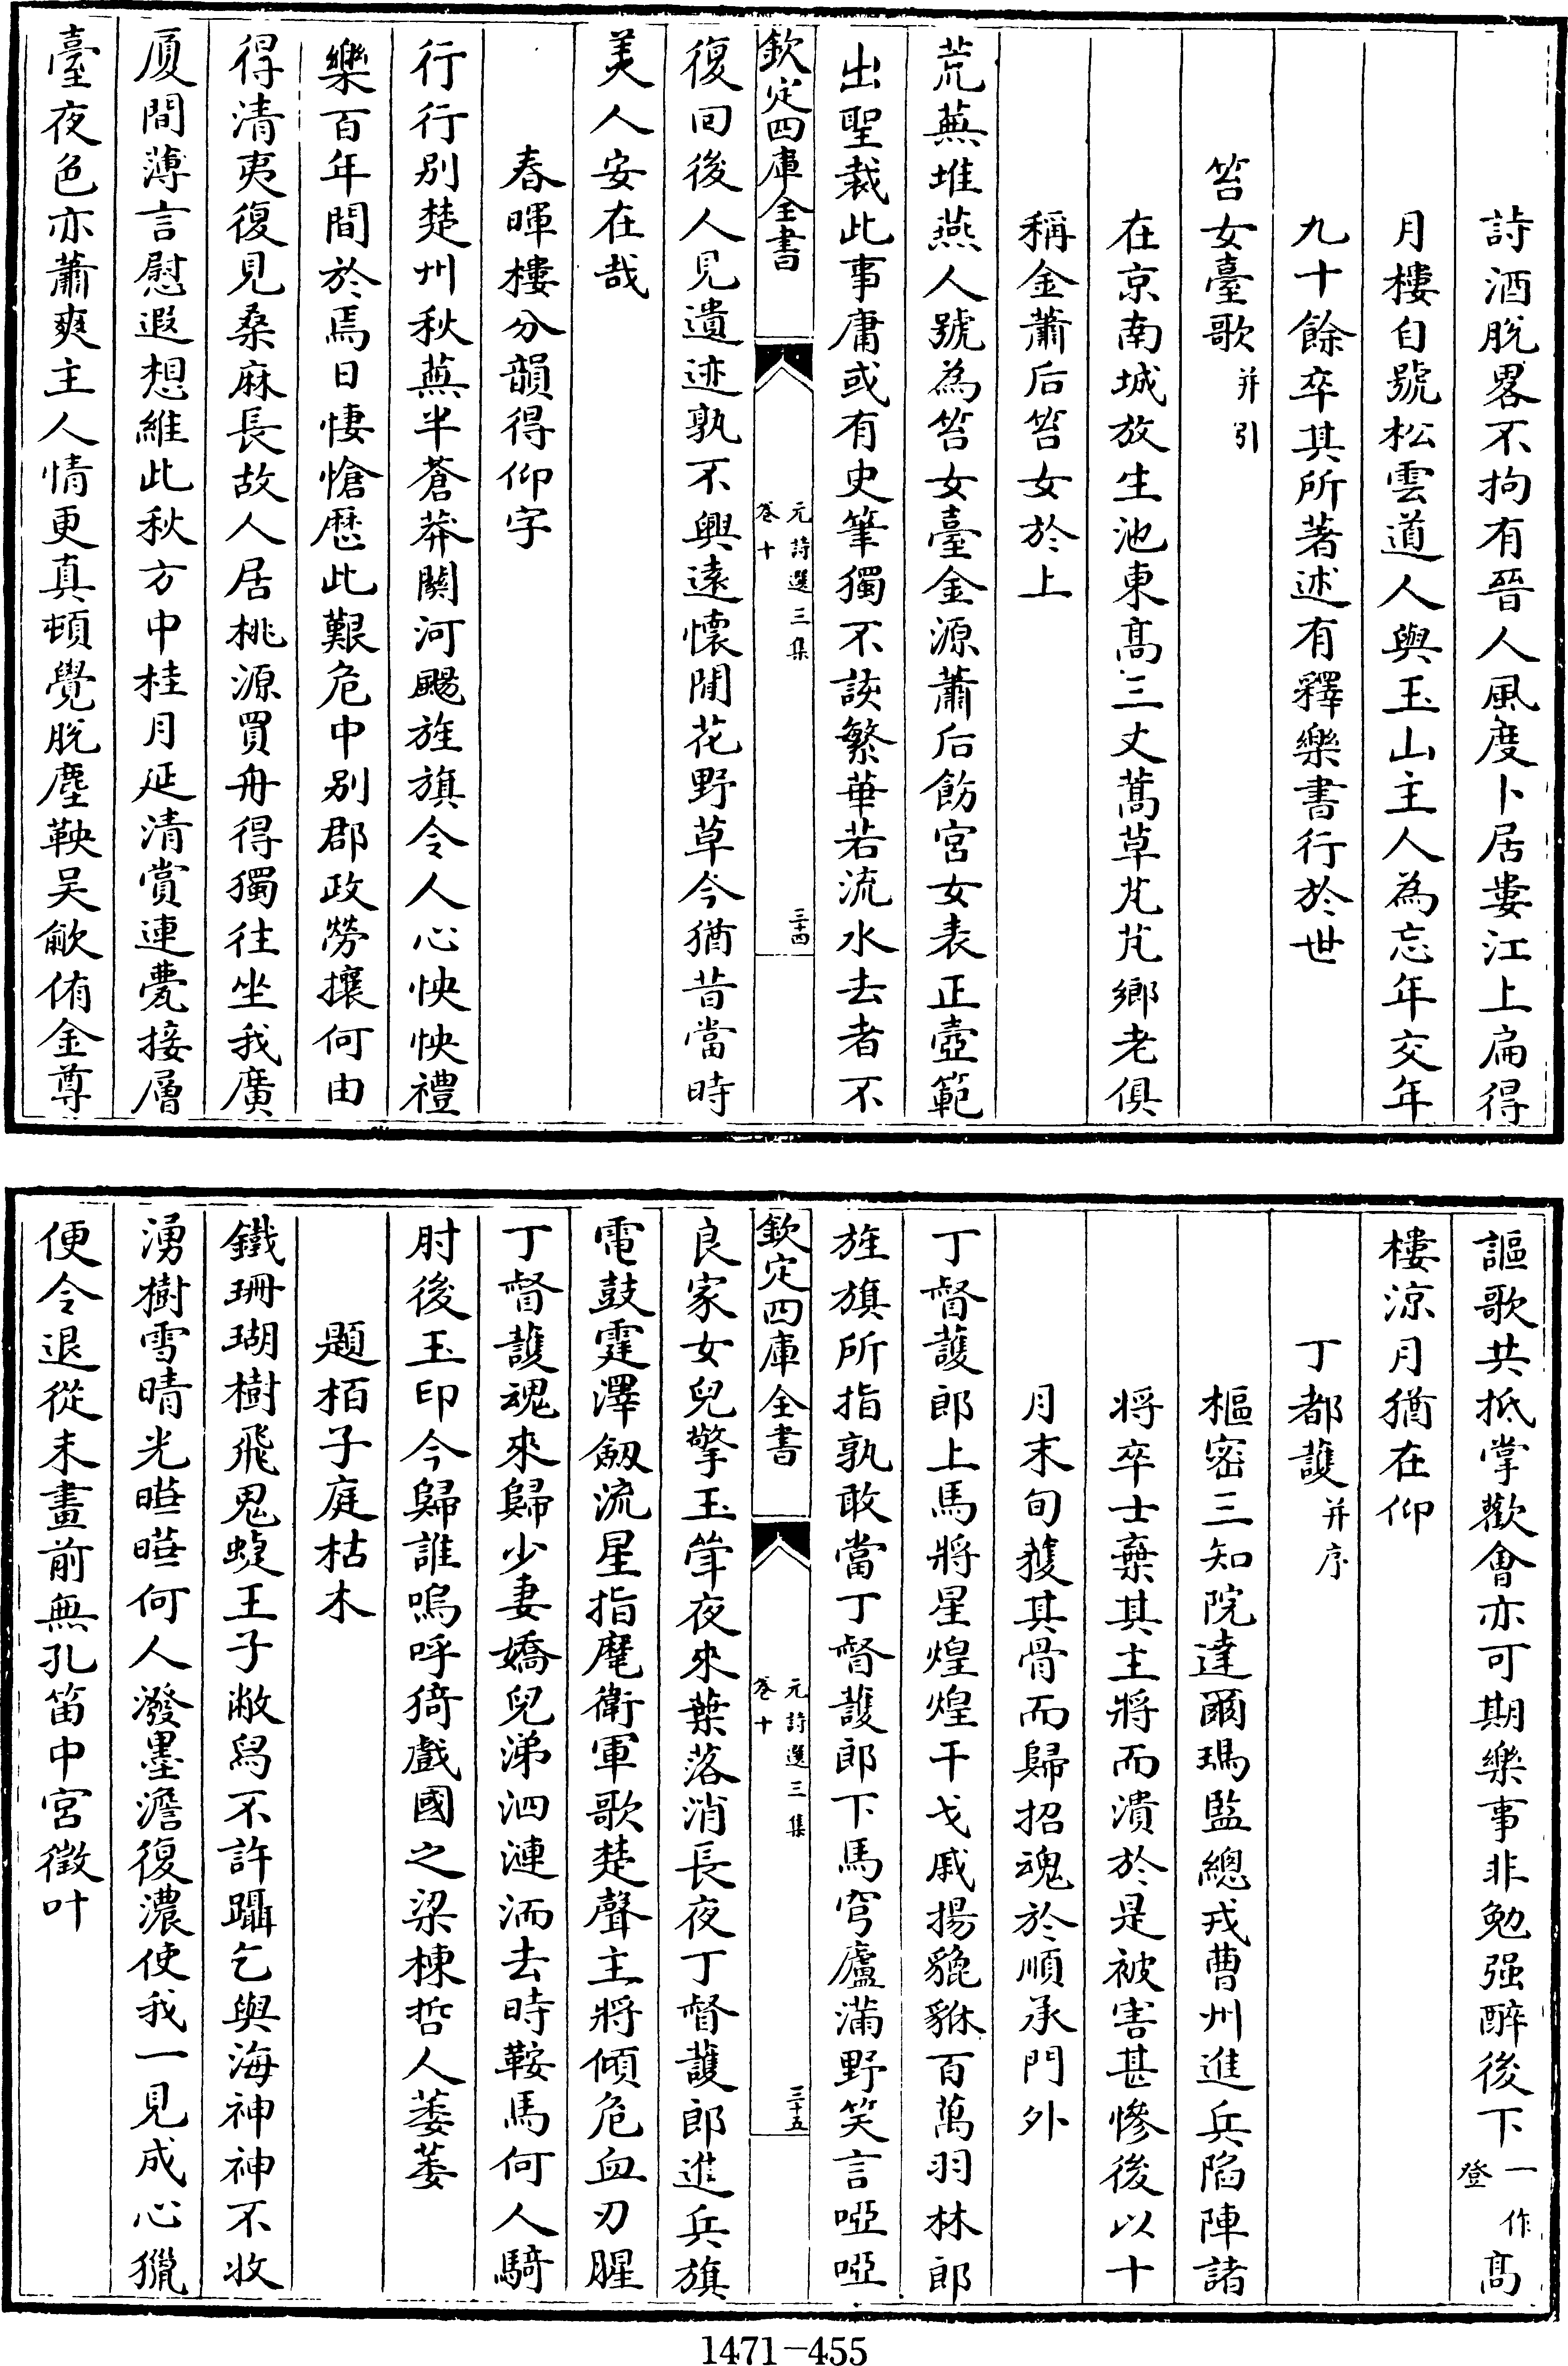 詩酒脫畧不拘有晉人風度卜居婁江上扁得
月樓自號松雲道人與玉山主人為忘年交年
九十餘卒其所著述有釋樂書行於世
笞女臺歌并引
在京南城放生池東髙三丈蒿草芃芃鄉老俱
稱金蕭后笞女於上
荒蕪堆燕人號為笞女臺金源蕭后飭宮女表正壼範
出聖裁此事庸或有史筆獨不該繁華若流水去者不
欽定四庫全書
元詩選三集
卷十
三十四
復回後人見遺迹孰不興遠懷閒花野草今猶昔當時
美人安在哉
春暉樓分韻得仰字
行行別楚州秋蕪半蒼莽關河颺旌旗令人心怏怏禮
樂百年間於焉日悽愴歴此艱危中别郡政勞攘何由
得清夷復見桑麻長故人居桃源買舟得獨往坐我廣
厦間薄言慰遐想維此秋方中桂月延清賞連甍接層
臺夜色亦蕭爽主人情更真頓覺脫塵鞅吳歈侑金尊
謳歌共抵掌歡會亦可期樂事非勉强醉後下一作登髙
樓涼月猶在仰
丁都護并序
樞密三知院達爾瑪監總戎曹州進兵陷陣諸
將卒士棄其主將而潰於是被害甚慘後以十
月末旬獲其骨而歸招魂於順承門外
丁督護郎上馬將星煌煌干戈戚揚貔貅百萬羽林郎
旌旗所指孰敢當丁督護郎下馬穹廬滿野笑言啞啞
欽定四庫全書
元詩選三集
卷十
三十五
良家女兒擎玉斝夜來葉落消長夜丁督護郎進兵旗
電鼓霆澤劔流星指麾衛軍歌楚聲主將傾危血刃腥
丁督護魂來歸少妻嬌兒涕泗漣洏去時鞍馬何人騎
肘後玉印今歸誰嗚呼猗戲國之梁棟哲人萎萎
題栢子庭枯木
鐵珊瑚樹飛鬼蜨王子敝舄不許躡乞與海神神不收
湧樹雪晴光曄曄何人潑墨澹復濃使我一見成心獵
便令退從未畫前無孔笛中宮徵叶
1471-455